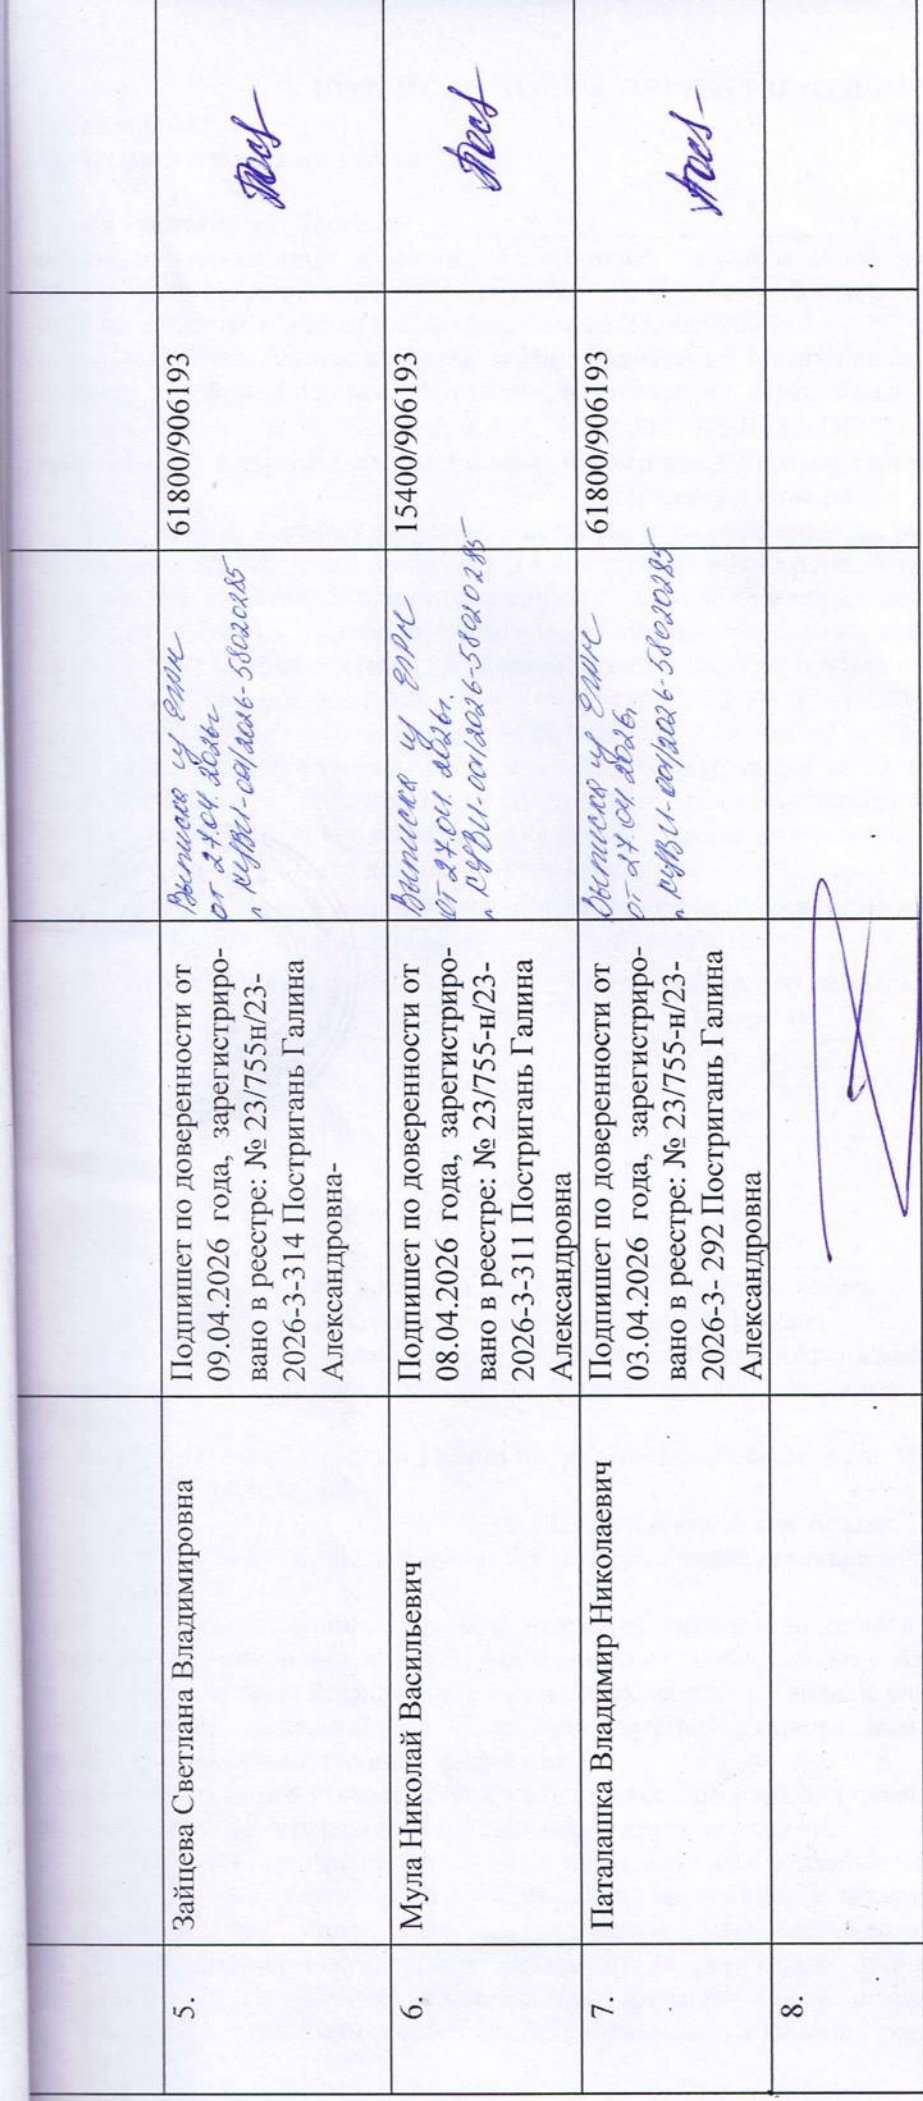 5.
Зайцева Светлана Владимировна
Подпишет по доверенности от
09.04.2026 года, зарегистриро-
вано в реестре: № 23/755н/23-
2026-3-314 Постригань Галина
Александровна-
Выписка из ЕГРН
от 27.04.2026г.
61800/906193
6.
Мула Николай Васильевич
Подпишет по доверенности от
08.04.2026 года, зарегистриро-
вано в реестре: № 23/755-н/23-
2026-3-311 Постригань Галина
Александровна
Выписка из ЕГРН
15400/906193
7.
Паталашка Владимир Николаевич
Подпишет по доверенности от
03.04.2026 года, зарегистриро-
вано в реестре: № 23/755-н/23-
2026-3- 292 Постригань Галина
Александровна
Выписка из ЕГРН
от 27.04.2026г.
61800/906193
8.